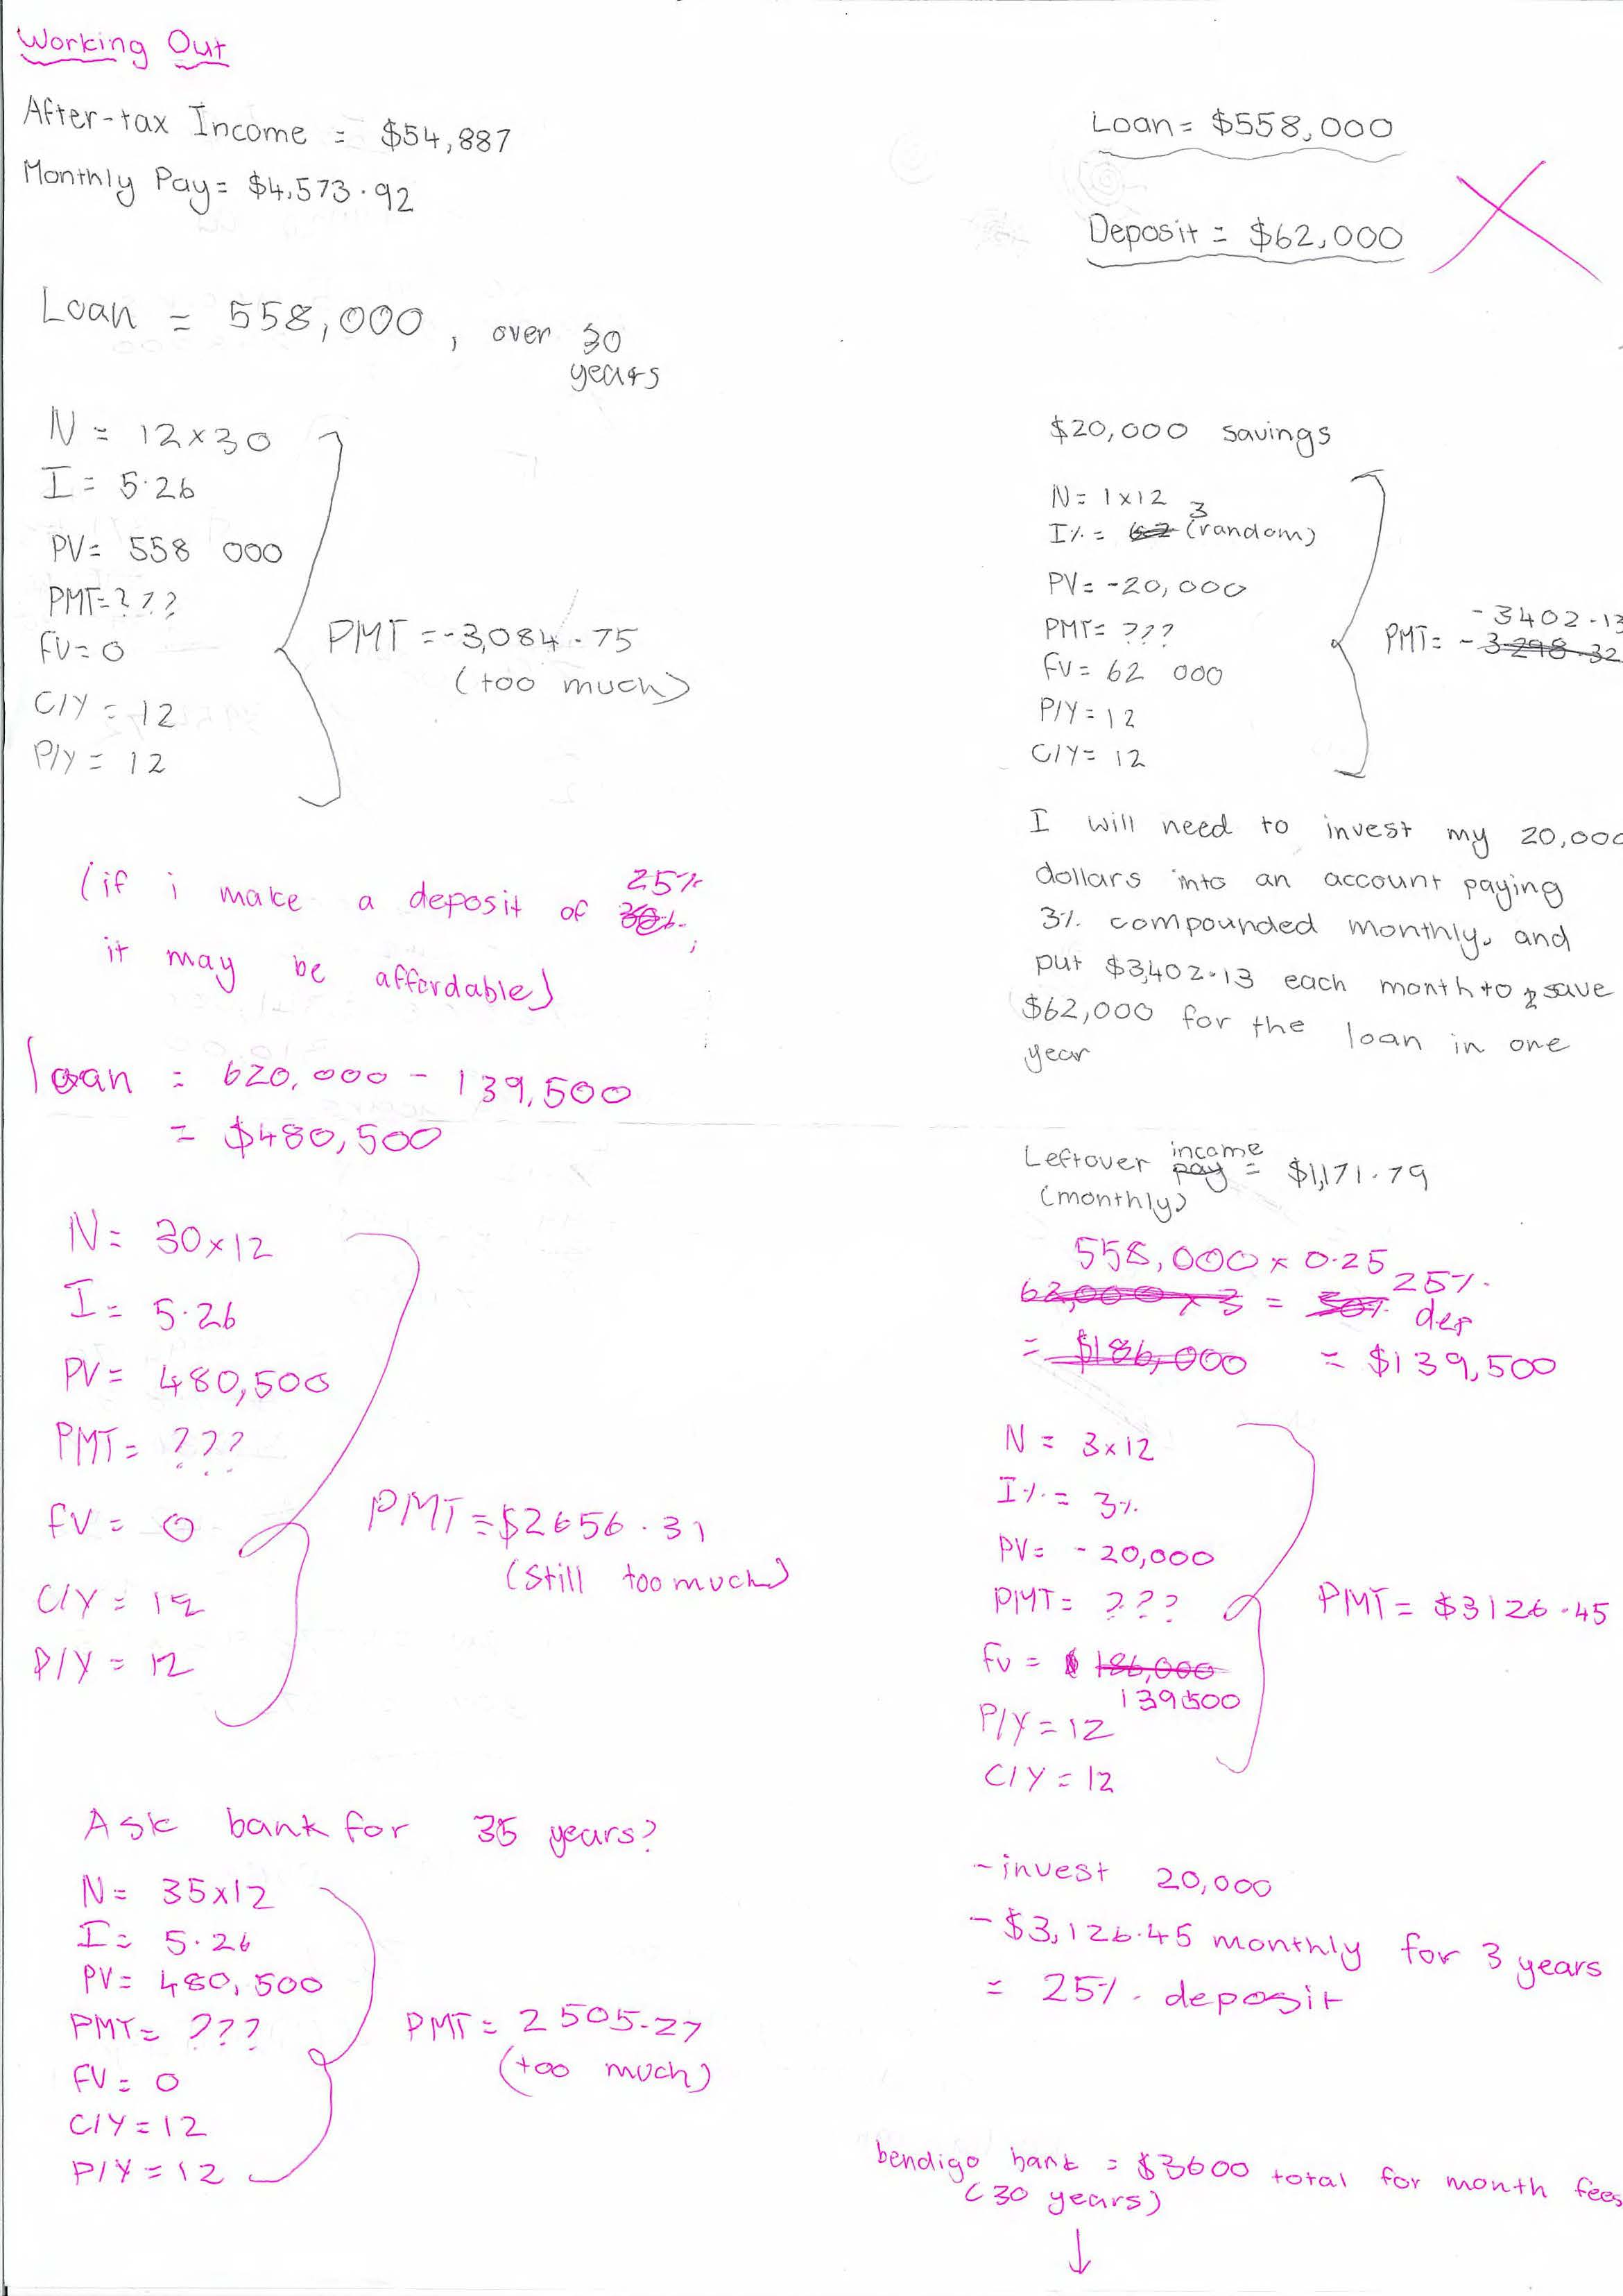 Working Out
After-tax Income = $54,887
Monthly Pay = $4,573.92
Loan = 558,000, over 30
years
N = 12×30
I = 5.26
PV = 558 000
PMT=???
FV=0
C/Y = 12
P/Y = 12
PMT = -3,084.75
(too much)
(if i make a deposit of 25%
it may be affordable)
loan = 620,000 - 139,500
= $480,500
N = 30×12
I = 5.26
PV = 480,500
PMT = ???
FV = 0
C/Y = 12
P/Y = 12
PMT = $2656.31
(Still too much)
Ask bank for 35 years?
N = 35×12
I = 5.26
PV = 480,500
PMT = ???
FV = 0
C/Y = 12
P/Y = 12
PMT = 2505.27
(too much)
Loan = $558,000
Deposit = $62,000
$20,000 savings
N = 1×12
I% = 3 (random)
PV = -20,000
PMT = ???
FV = 62 000
P/Y = 12
C/Y = 12
-3402.13
PMT = -3298.32
I will need to invest my 20,000
dollars into an account paying
3% compounded monthly, and
put $3,402.13 each month to save
$62,000 for the loan in one
year
Leftover pay income = $1,171.79
(monthly)
558,000 × 0.25
62,000 × 3 = 30% 25% dep
= $186,000 = $139,500
N = 3×12
I% = 3%
PV = -20,000
PMT = ???
FV = 186,000
139500
P/Y = 12
C/Y = 12
PMT = $3126.45
- invest 20,000
- $3,126.45 monthly for 3 years
= 25% deposit
bendigo bank = $3600 total for month fees
(30 years)